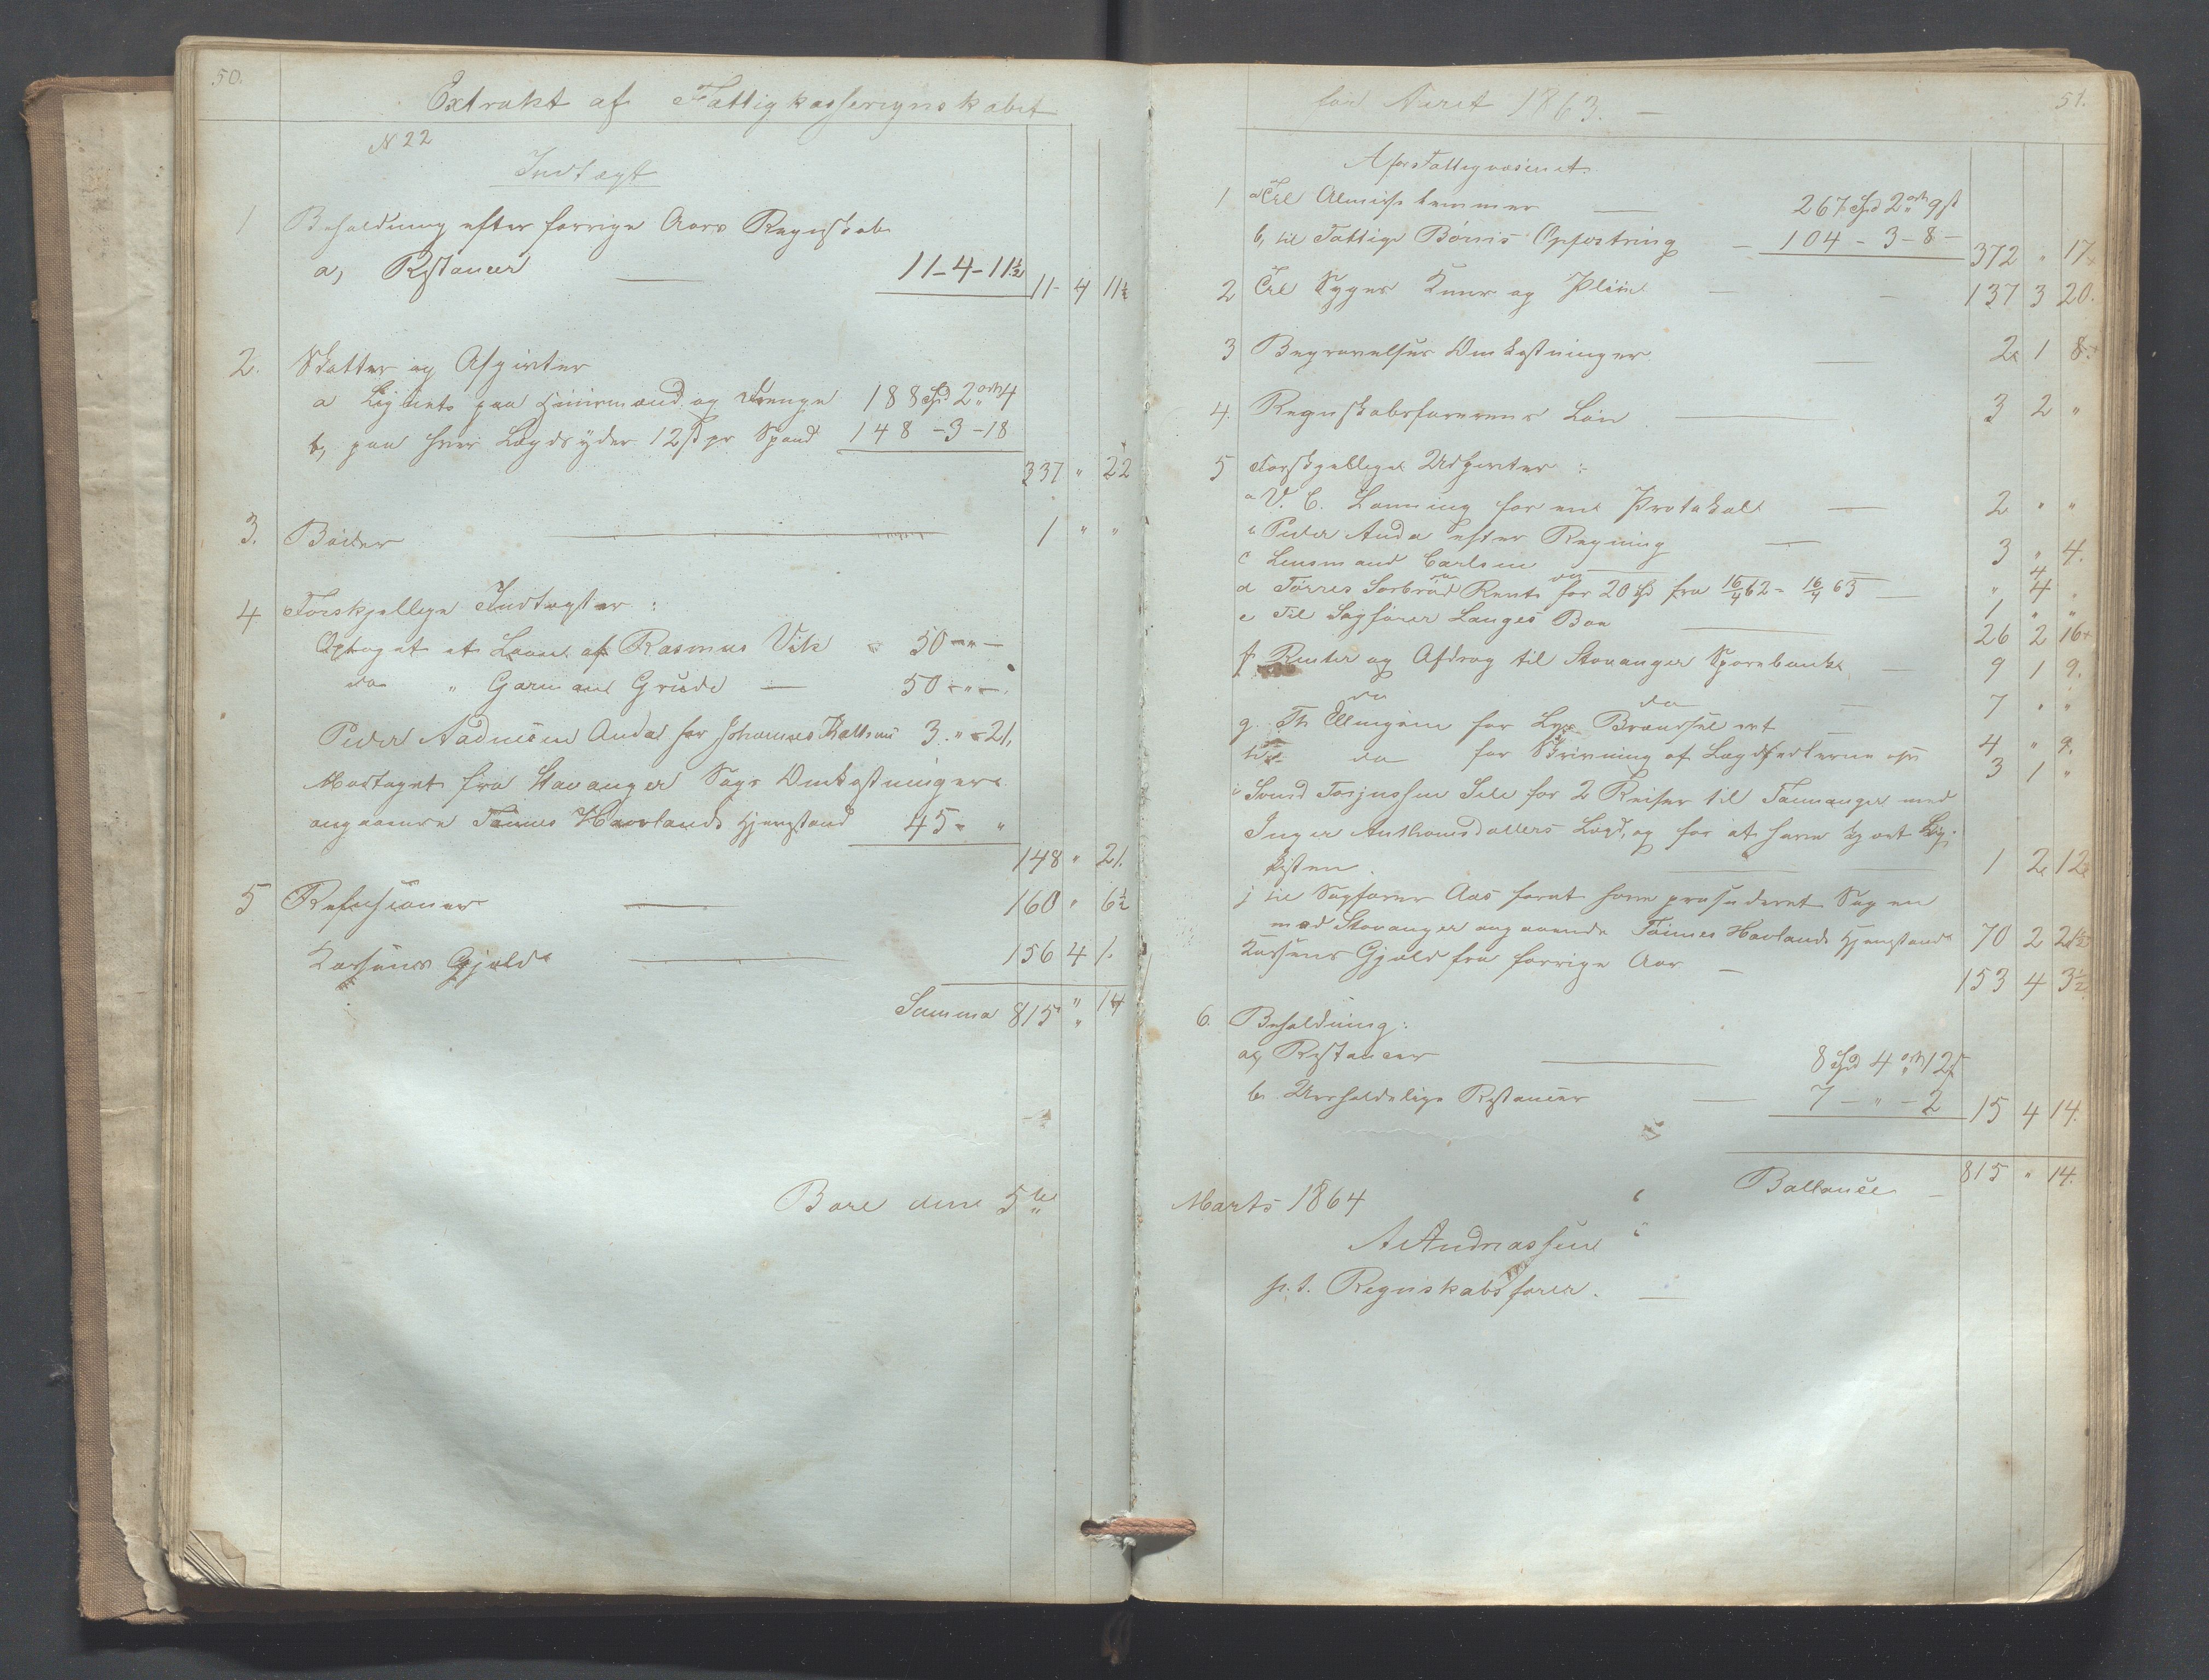 50.
Extrakt af Fattigkasseregnskabet
N 22
Indtægt
1 Beholdning efter forrige Aars Regnskab
a, Restancer 11-4-11½ 11- 4 11½
2. Skatter og Afgivter
a Lignets paa Huusmænd og Drenge 188 Spd 2 ort 4
b, paa hver Lægdsyder 12 ß pr Spand 148 -3-18
337 " 22
3. Bøder 1 " "
4 Forskjellige Indtægter:
Optaget et Laan af Rasmus Vik 50 - " -
do " Garmand Grude - 50 - " -
Peder Aadnesen Anda for Johannes 3. " - 21.
Modtaget fra Stavanger Sags Omkostninger
angaaende Tønnes Haavlands Hjemstand 45 - "
148 " 21.
5 Refusioner 160 " 6½
Kassens Gjæld 156 4 1.
Summa 815 " 14
Bore den 5te
for Aaret 1863. -
51.
A for Fattigvæsenet.
1 a Til Almisselemmer 267 Spd 2 ort 9 ß
b, til Fattige Børns Opfostring - 104 - 3 - 8 - 372 " 17
2 Til Syges Kuur og Pleie - - 137 3 20.
3 Begravelses Omkostninger 2 1 8
4. Regnskabsførerens Løn 3 2 "
5 Forskjellige Udgivter:
a V. C. Lanning for en Protokol 2 " "
b Peder Anda efter Regning 3 " 4.
c Lensmand Carlsen " 4
d Tørres Sorbrød Rente for 20 Spd fra 16/4 62 - 16/4 63 1 " "
e Til Sagfører Langes Boe 26 2 16
f Renter og Afdrag til Stavanger Sparebank - 9 1 9.
do do - 7 " "
g. Th for Lys Brændsel mt - 4 " 9.
h do for Skrivning af Lægdsedlerne 3 1 "
i Svend Torjussen Sele for 2 Reiser til Tananger med
Inger Lægd, og for at have kjørt Lig-
kisten 1 2 12
j til Sagfører Aas forat have Sagen
mod Stavanger angaaende Tønnes Havlands Hjemstand 70 2 21½
Kassens Gjæld fra forrige Aar - 153 4 3½
6. Beholdning:
a, Restancer 8 Spd 4 ort 12 ß
b. Uerholdelige Restancer 7 - " - 2 15 4 14.
Ballance - 815 " 14.
Marts 1864
A Andreassen
p. t. Regnskabsfører.